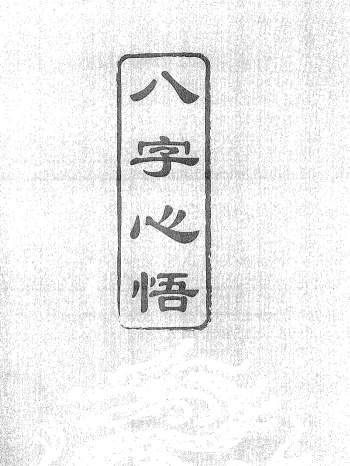 八字心悟